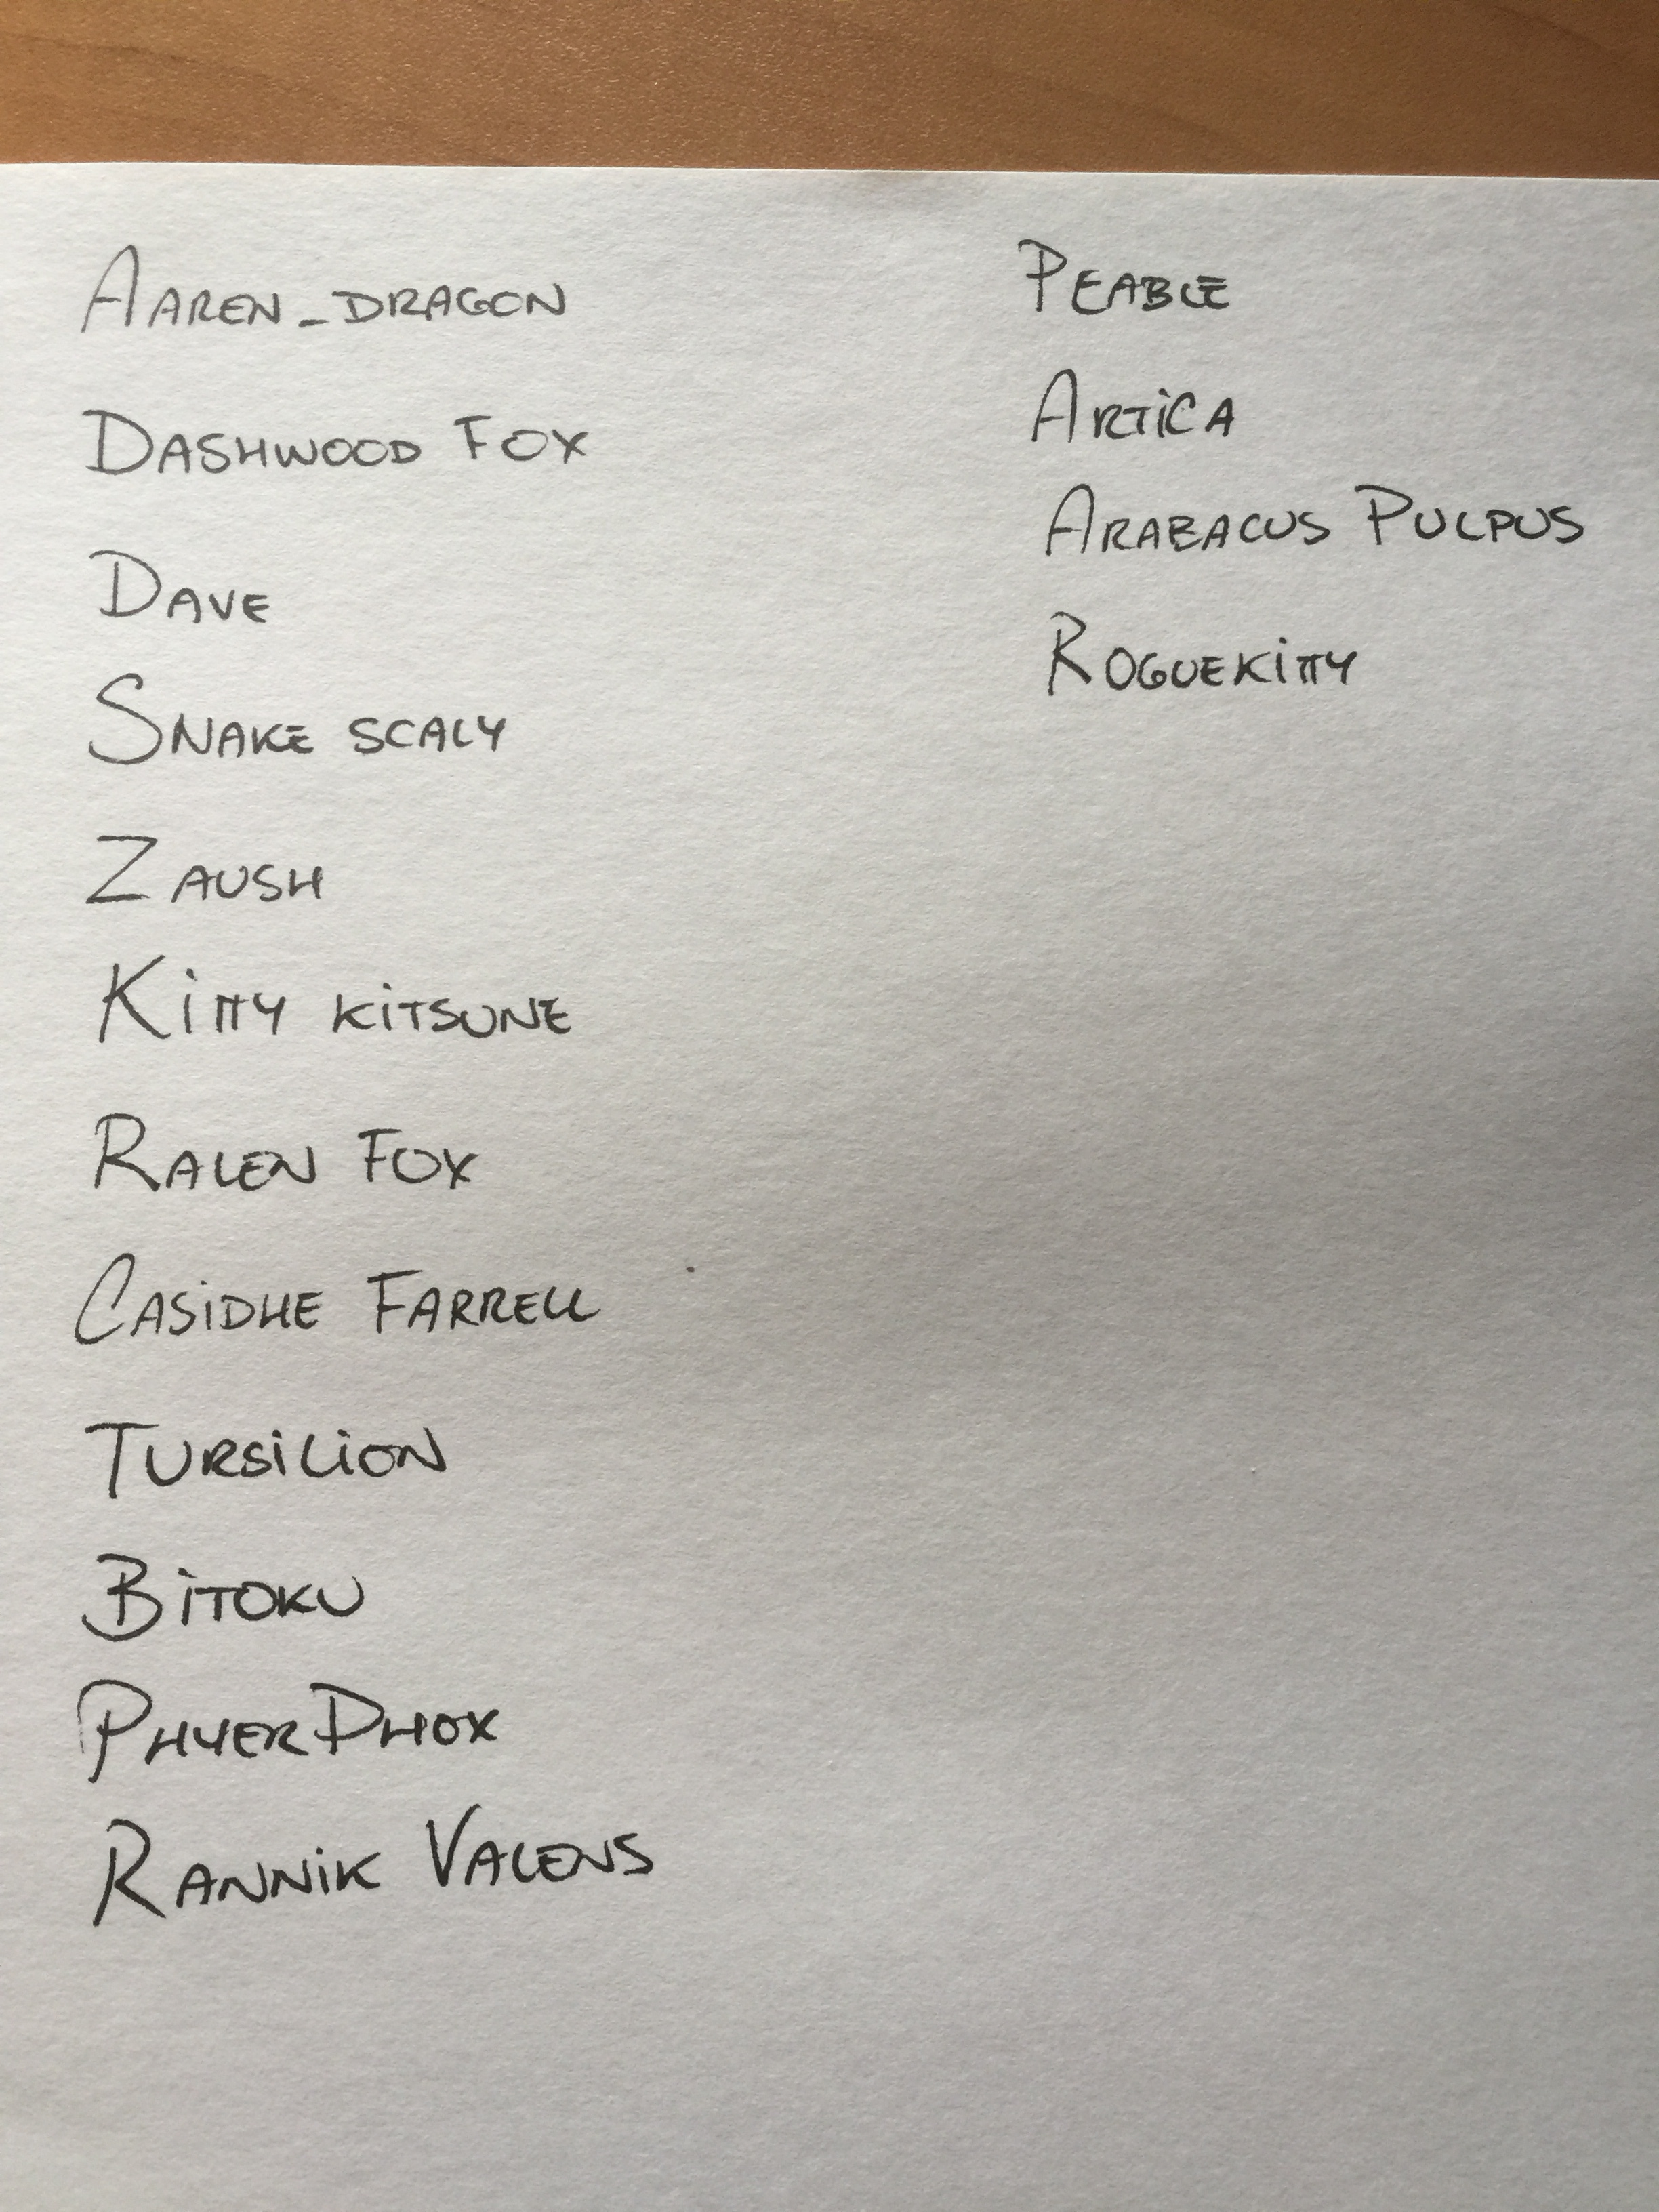 AAREN_DRAGON
DASHWOOD FOX
DAVE
SNAKE SCALY
ZAUSH
KiTTY KiTSUNE
RALEN FOX
CASiDHE FARRELL
TURSiLiON
BiTOKU
PHYERPHOX
RANNiK VALENS
PEABLE
ARTiCA
ARABACUS PULPUS
ROGUEKiTTY